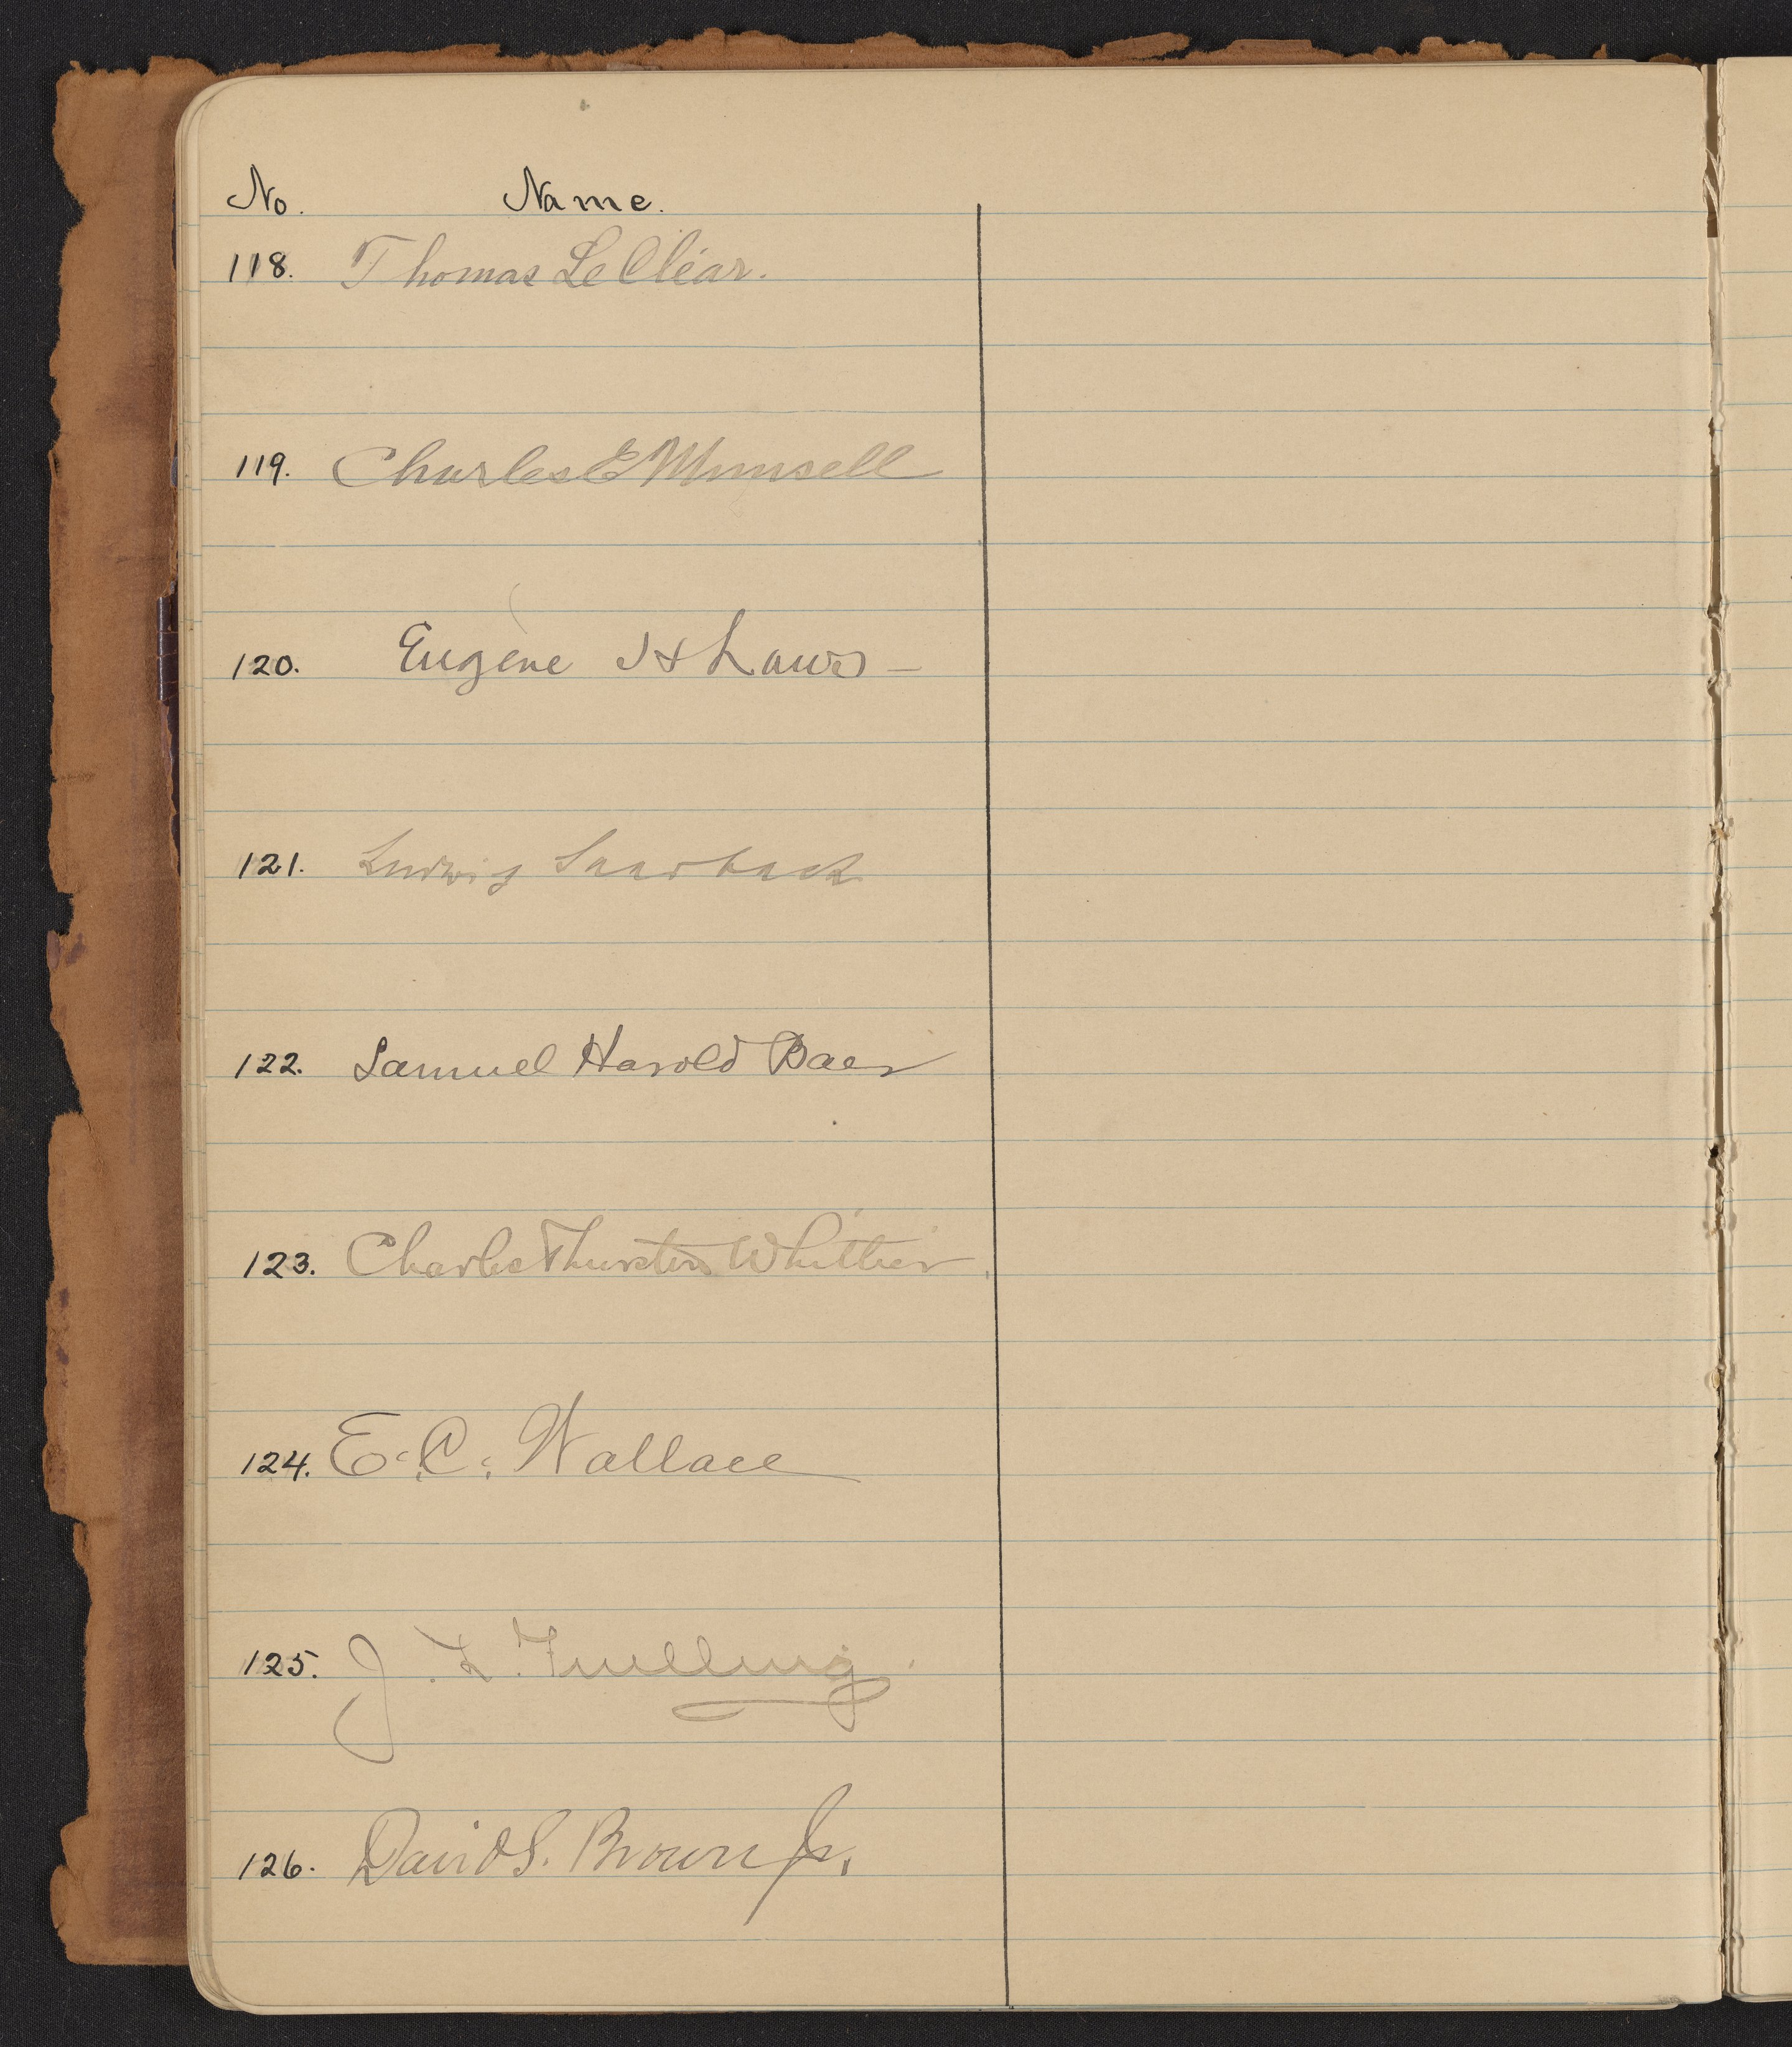 No. Name.
118. Thomas Le Clear.
119. Charles E Munsell
120. Eugene H Laws -
121. Ludwig Saarbach
122. Samuel Harold Baer
123. Charles Thurston Whittier.
124. E. C. Wallace
125. J. L. Fuelling.
126. David S. Brown Jr.